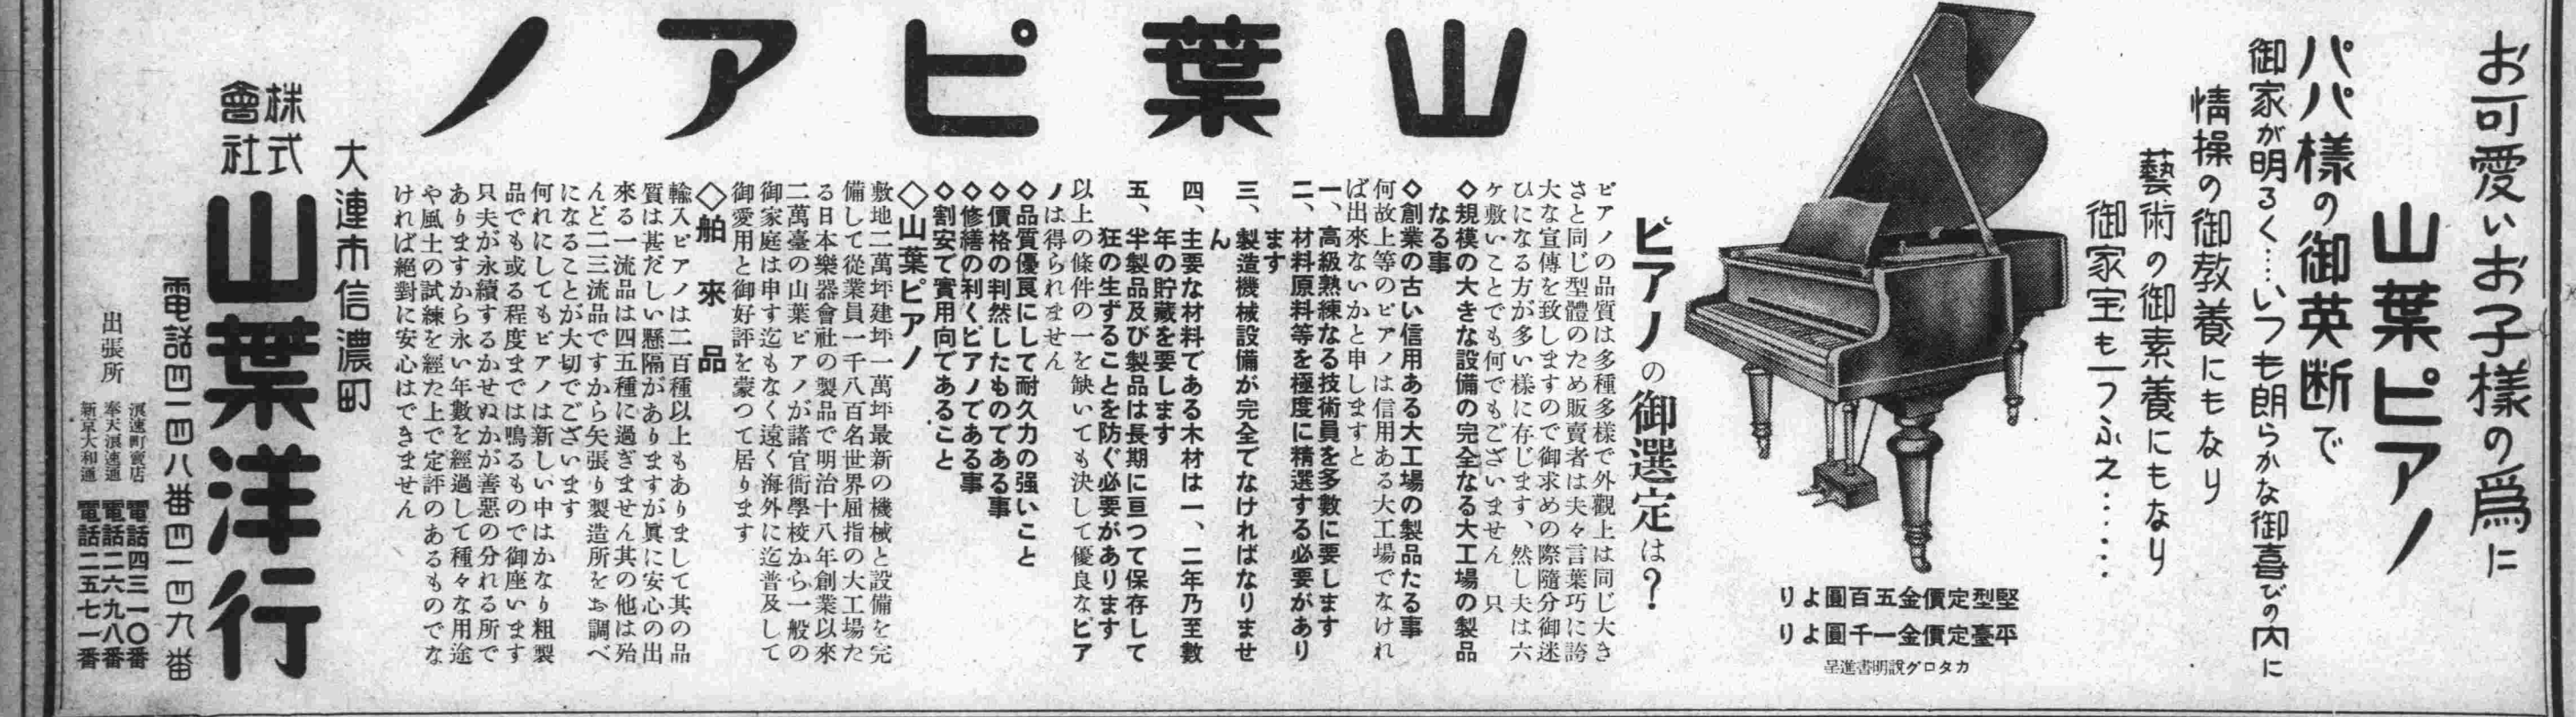 お可愛いお子様の爲に
山葉ピアノ
パパ様の御英断で
御家が明るく……いつも朗らかな御喜びの内に
情操の御教養にもなり
藝術の御素養にもなり
御家宝も一つふえ……
堅型定價金五百圓より
平臺定價金一千圓より
カタログ説明書進呈
山葉ピアノ
ピアノの御選定は?
ピアノの品質は多種多様で外觀上は同じ大き
さと同じ型體のため販賣者は夫々言葉巧に誇
大な宣傳を致しますので御求めの際隨分御迷
ひになる方が多い様に存じます、然し夫は六
ケ敷いことでも何でもございません 只
◇規模の大きな設備の完全なる大工場の製品
なる事
◇創業の古い信用ある大工場の製品たる事
何故上等のピアノは信用ある大工場でなけれ
ば出來ないかと申しますと
一、高級熟練なる技術員を多數に要します
二、材料原料等を極度に精選する必要があり
ます
三、製造機械設備が完全でなければなりませ
ん
四、主要な材料である木材は一、二年乃至數
年の貯藏を要します
五、半製品及び製品は長期に亘つて保存して
狂の生ずることを防ぐ必要があります
以上の條件の一を缺いても決して優良なピア
ノは得られません
◇品質優良にして耐久力の强いこと
◇價格の判然したものである事
◇修繕の利くピアノである事
◇割安で實用向であること
◇山葉ピアノ
敷地二萬坪建坪一萬坪最新の機械と設備を完
備して從業員一千八百名世界屈指の大工場た
る日本樂器會社の製品で明治十八年創業以來
二萬臺の山葉ピアノが諸官衙學校から一般の
御家庭は申す迄もなく遠く海外に迄普及して
御愛用と御好評を蒙つて居ります
◇舶來品
輸入ピアノは二百種以上もありまして其の品
質は甚だしい懸隔がありますが眞に安心の出
來る一流品は四五種に過ぎません其の他は殆
んど二三流品ですから矢張り製造所をお調べ
になることが大切でございます
何れにしてもピアノは新しい中はかなり粗製
品でも或る程度までは鳴るもので御座います
只夫が永續するかせぬかが善惡の分れる所で
ありますから永い年數を經過して種々な用途
や風土の試練を經た上で定評のあるものでな
ければ絶對に安心はできません
大連市信濃町
株式會社 山葉洋行
電話四一四八番四一四九番
出張所
浪速町賣店 電話四三一〇番
奉天浪速通 電話二六九八番
新京大和通 電話二五七一番